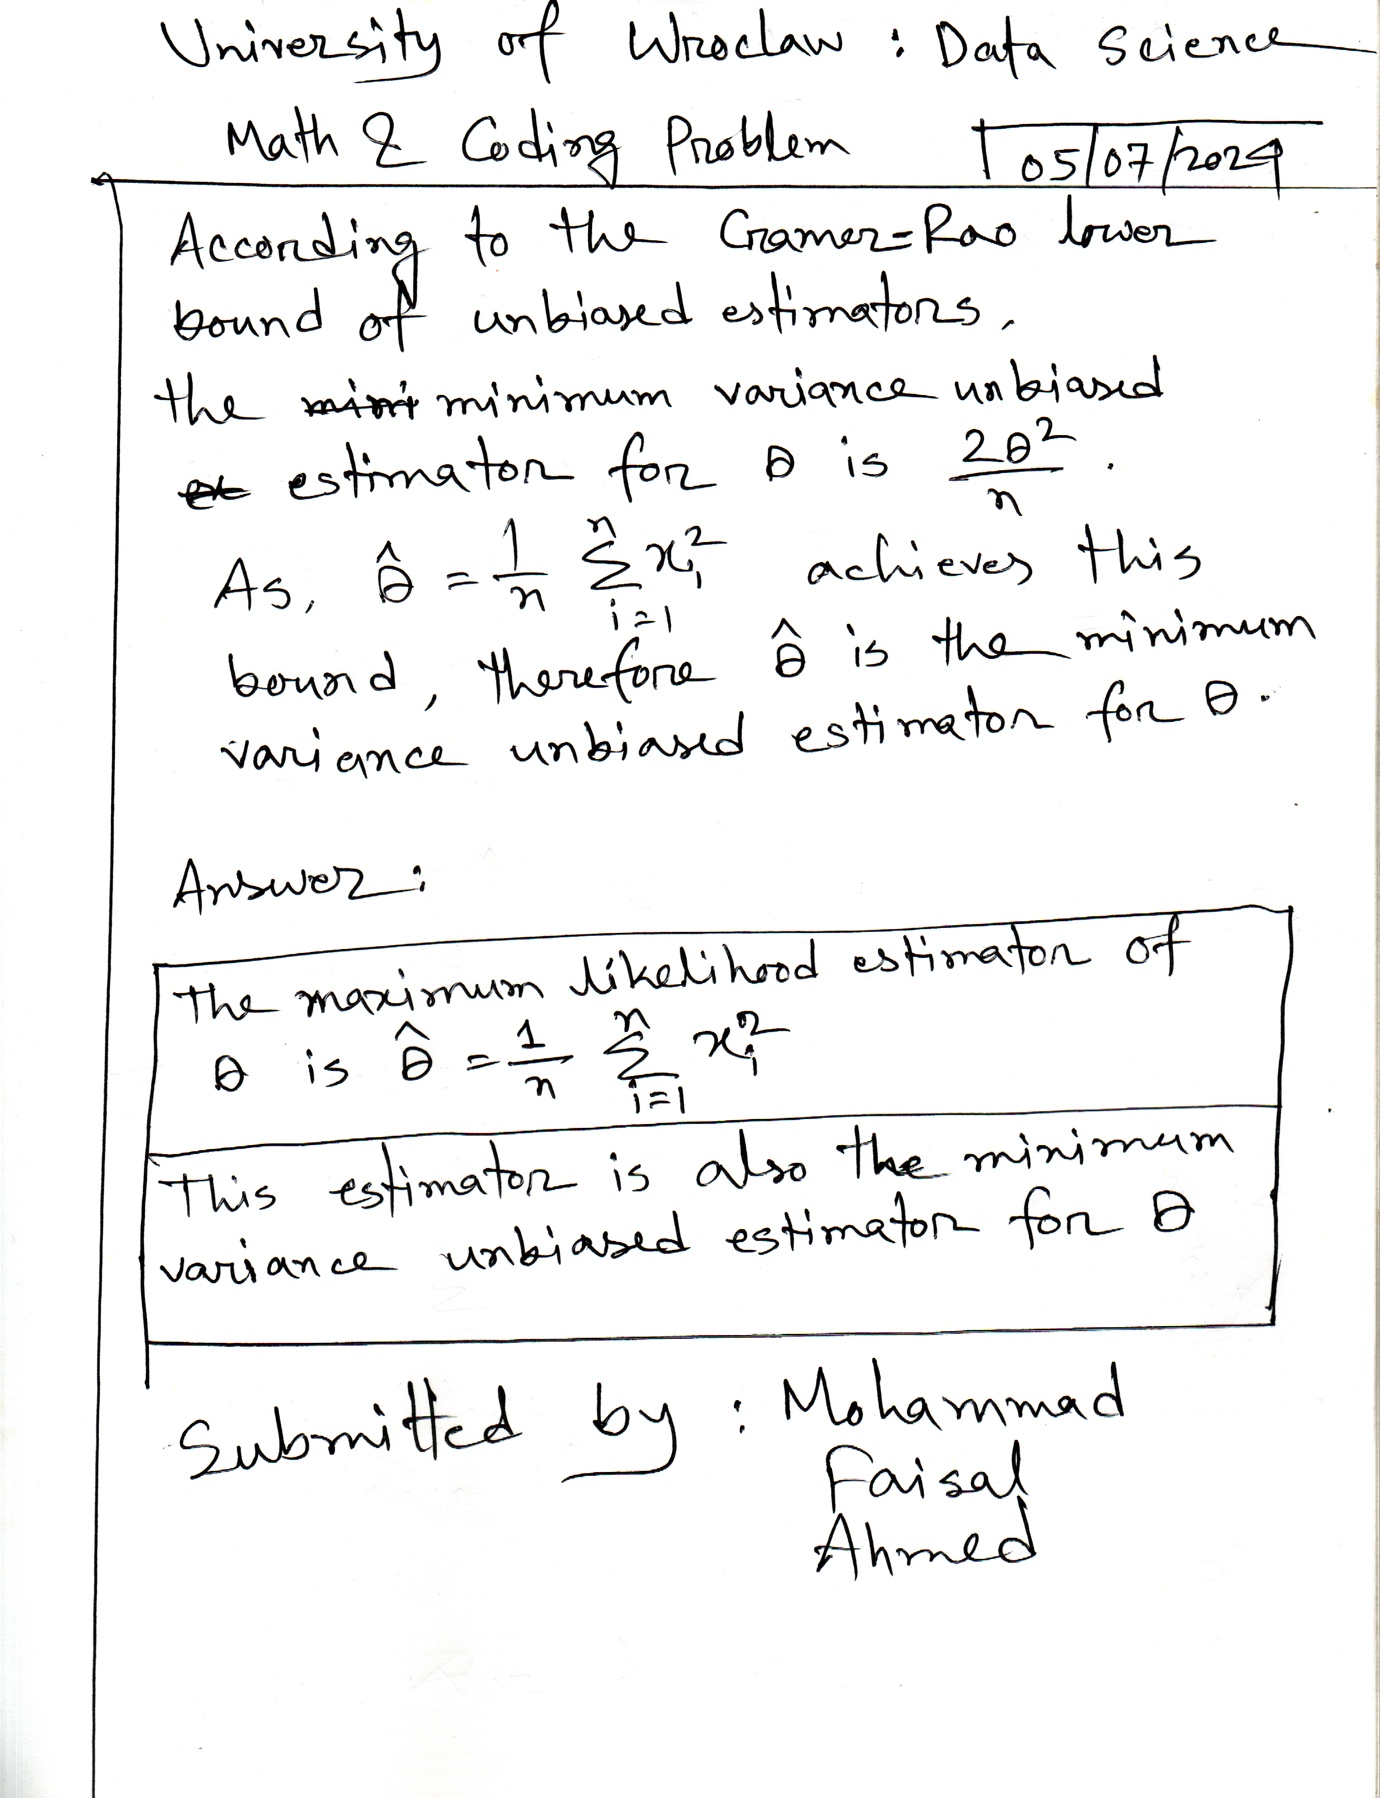 University of Wroclaw : Data Science
Math & Coding Problem 05/07/2024
According to the Cramer-Rao lower
bound of unbiased estimators,
the mini minimum variance unbiased
et estimator for θ is 2θ²/n.
As, θ̂ = 1/n Σᵢ₌₁ⁿ xᵢ² achieves this
bound, therefore θ̂ is the minimum
variance unbiased estimator for θ.
Answer:
The maximum likelihood estimator of
θ is θ̂ = 1/n Σᵢ₌₁ⁿ xᵢ²
This estimator is also the minimum
variance unbiased estimator for θ
Submitted by : Mohammad
Faisal
Ahmed